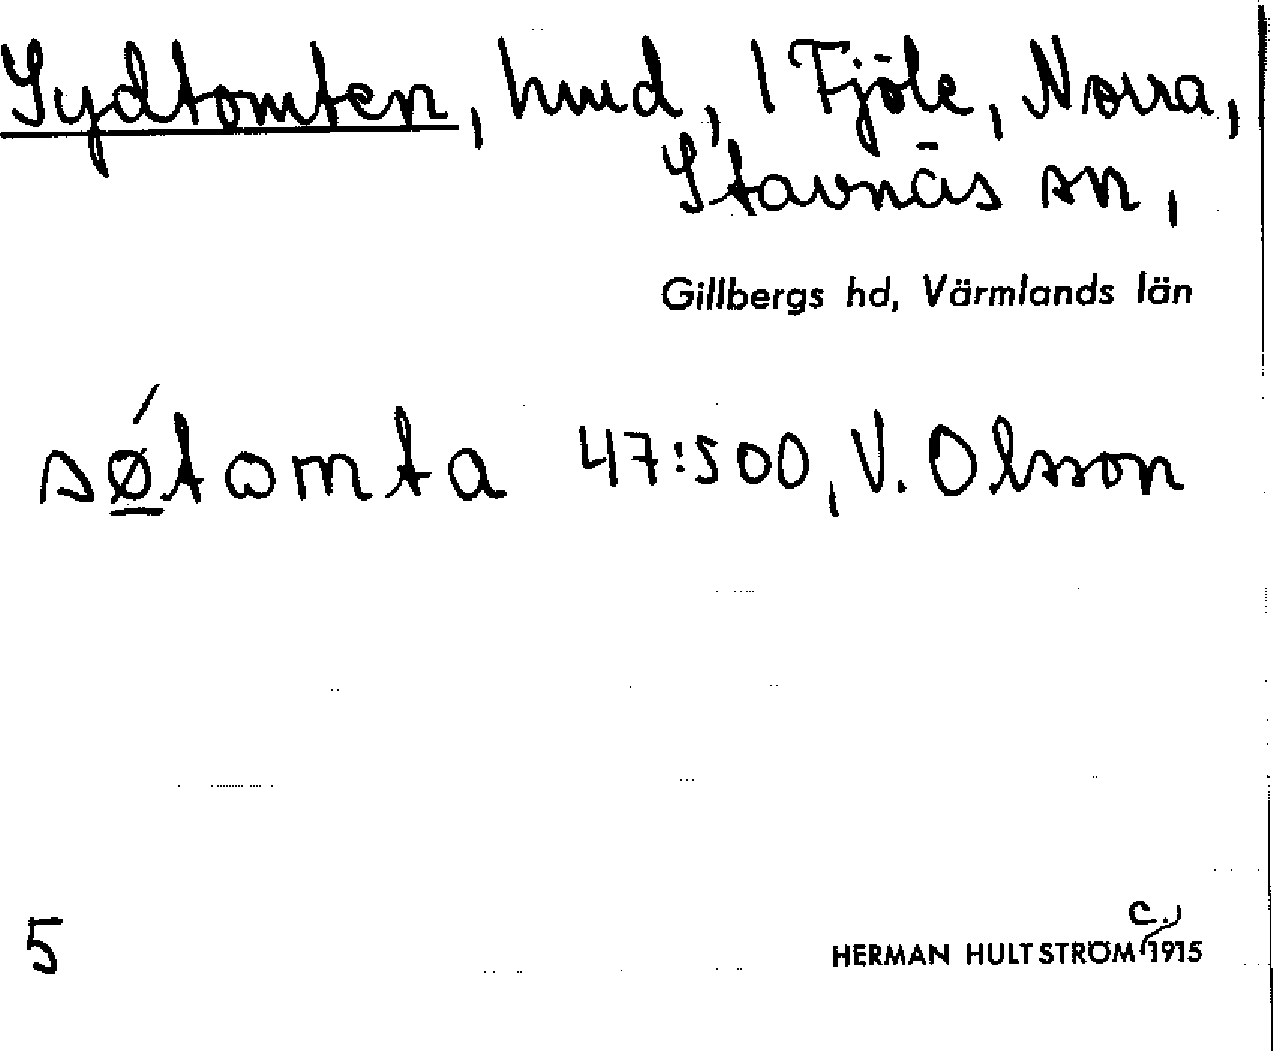 Sydtomten, hmd, 1 Fjöle, Norra,
Stavnäs sn,
Gillbergs hd, Värmlands län
sǿ̲tωmta 47:500, V. Olsson
c.,
5 HERMAN HULTSTRÖM 1915